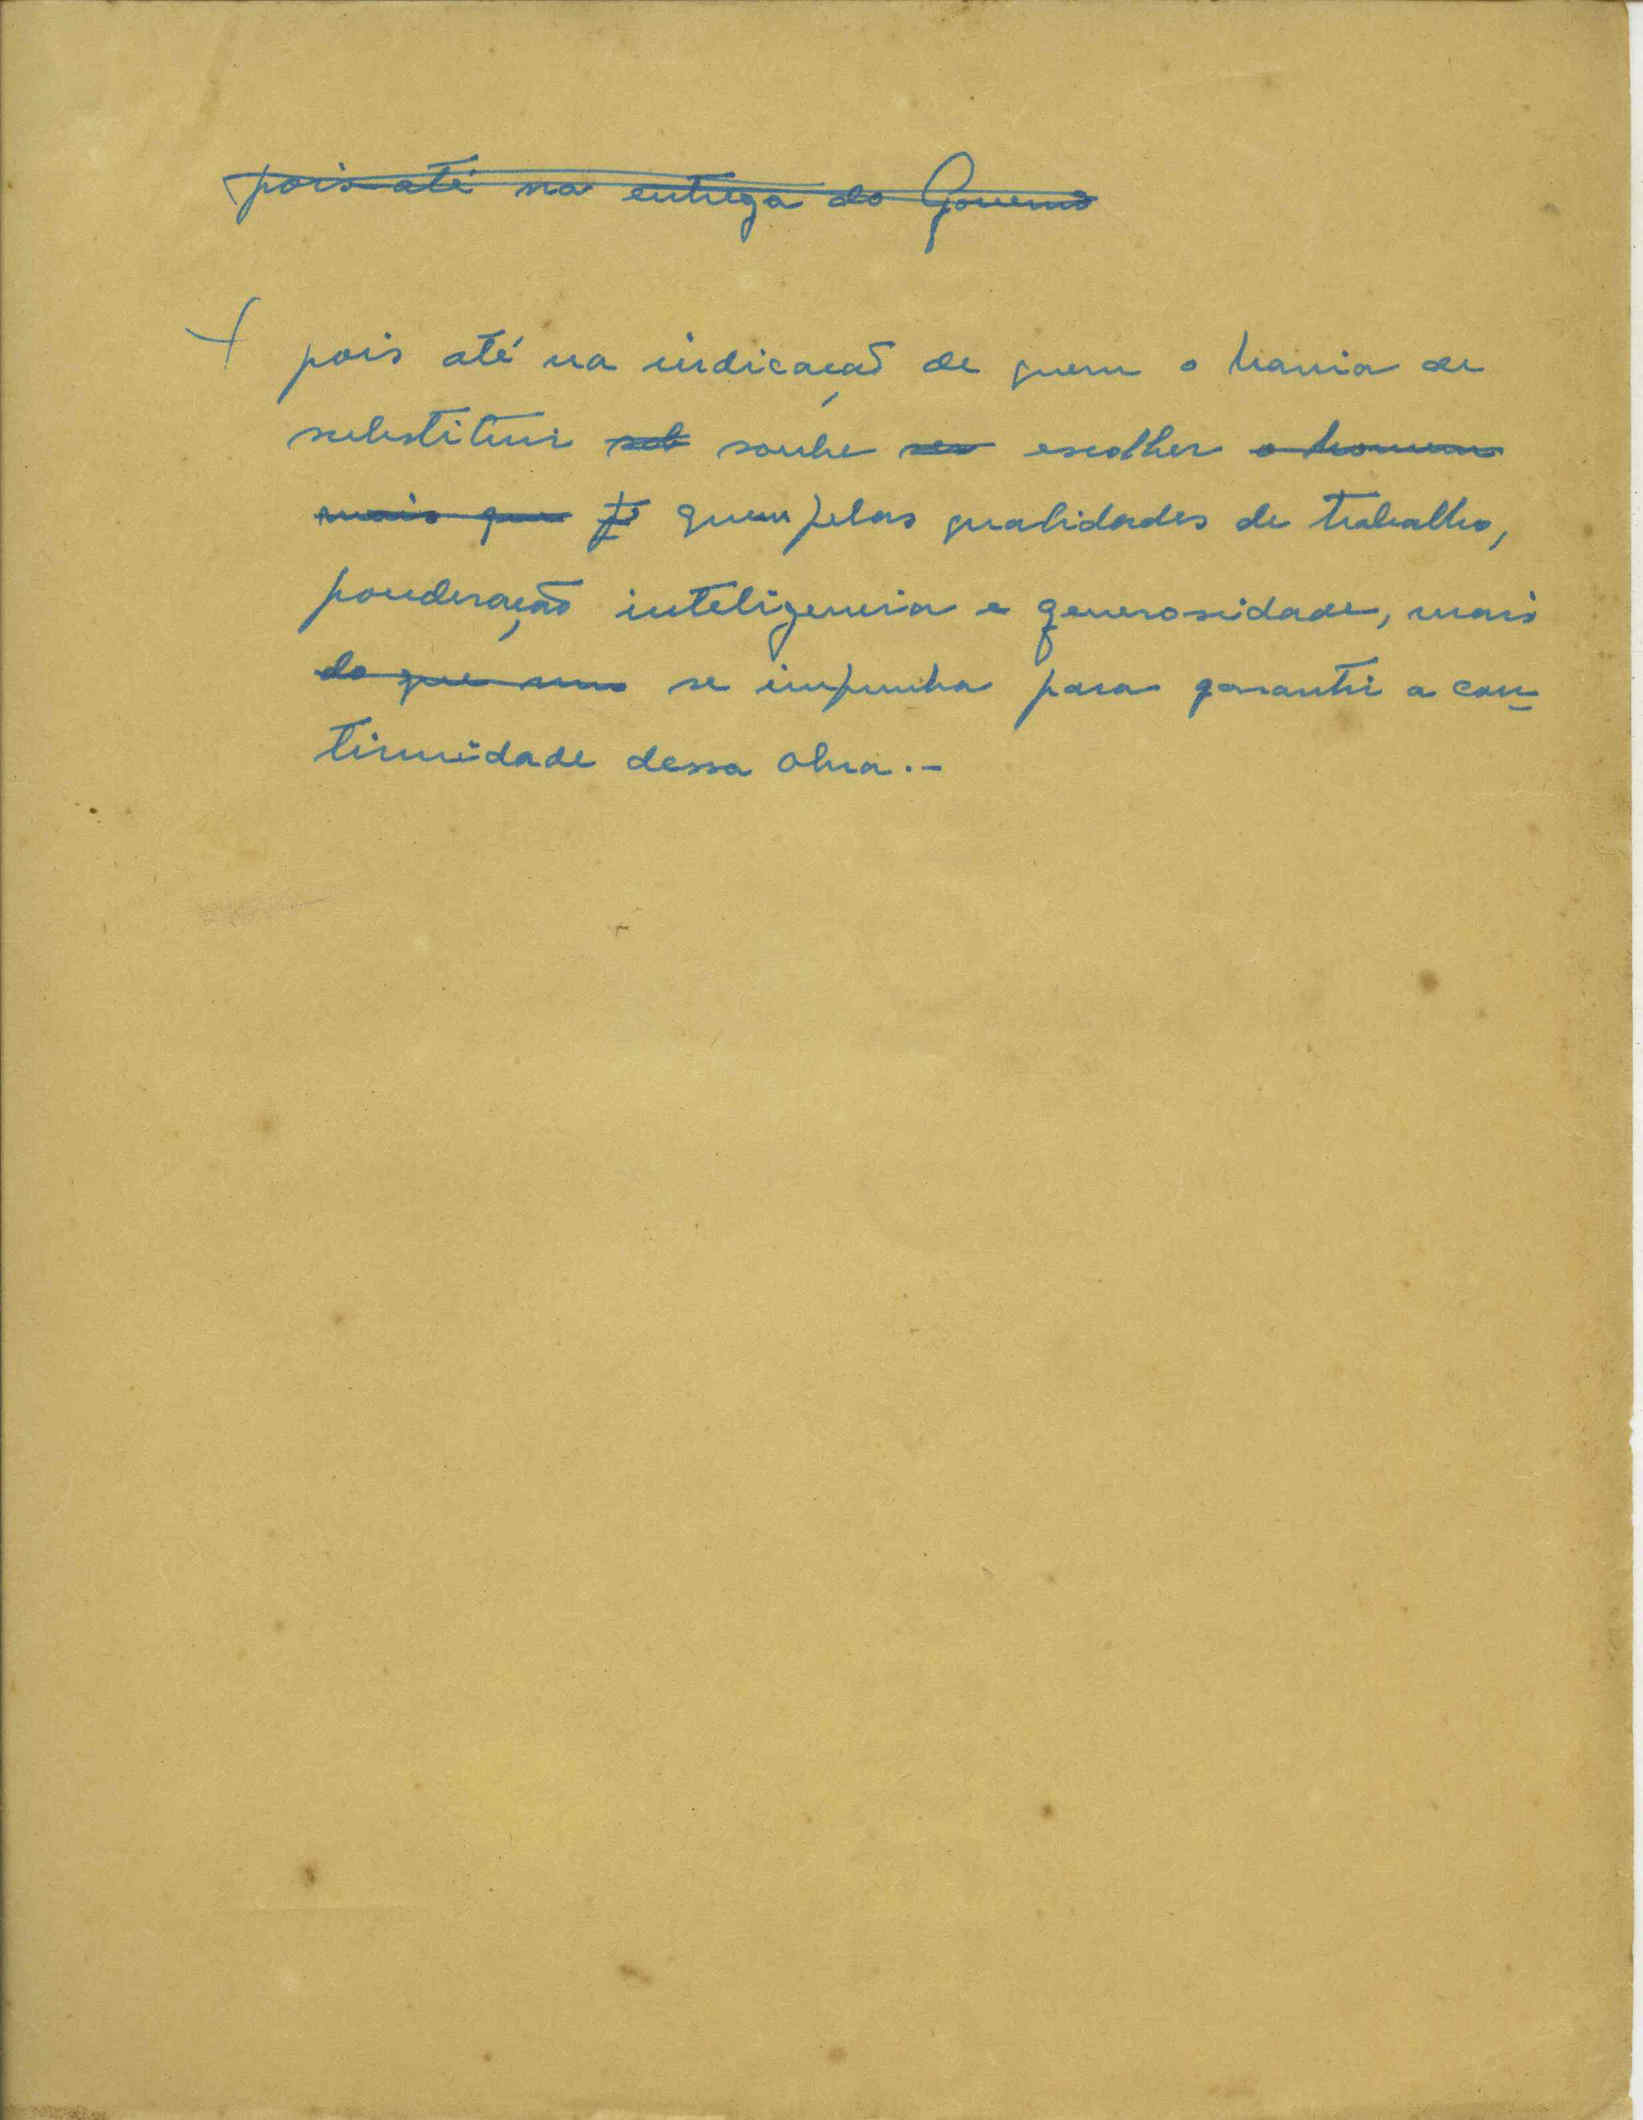 pois até na entrega do Governo
+ pois até na indicação de quem o havia de
substituir sob soube ser escolher o homem
mais que quem pelas qualidades de trabalho,
ponderação inteligencia e generosidade, mais
do que um se impunha para garantir a con-
tinuidade dessa obra.-